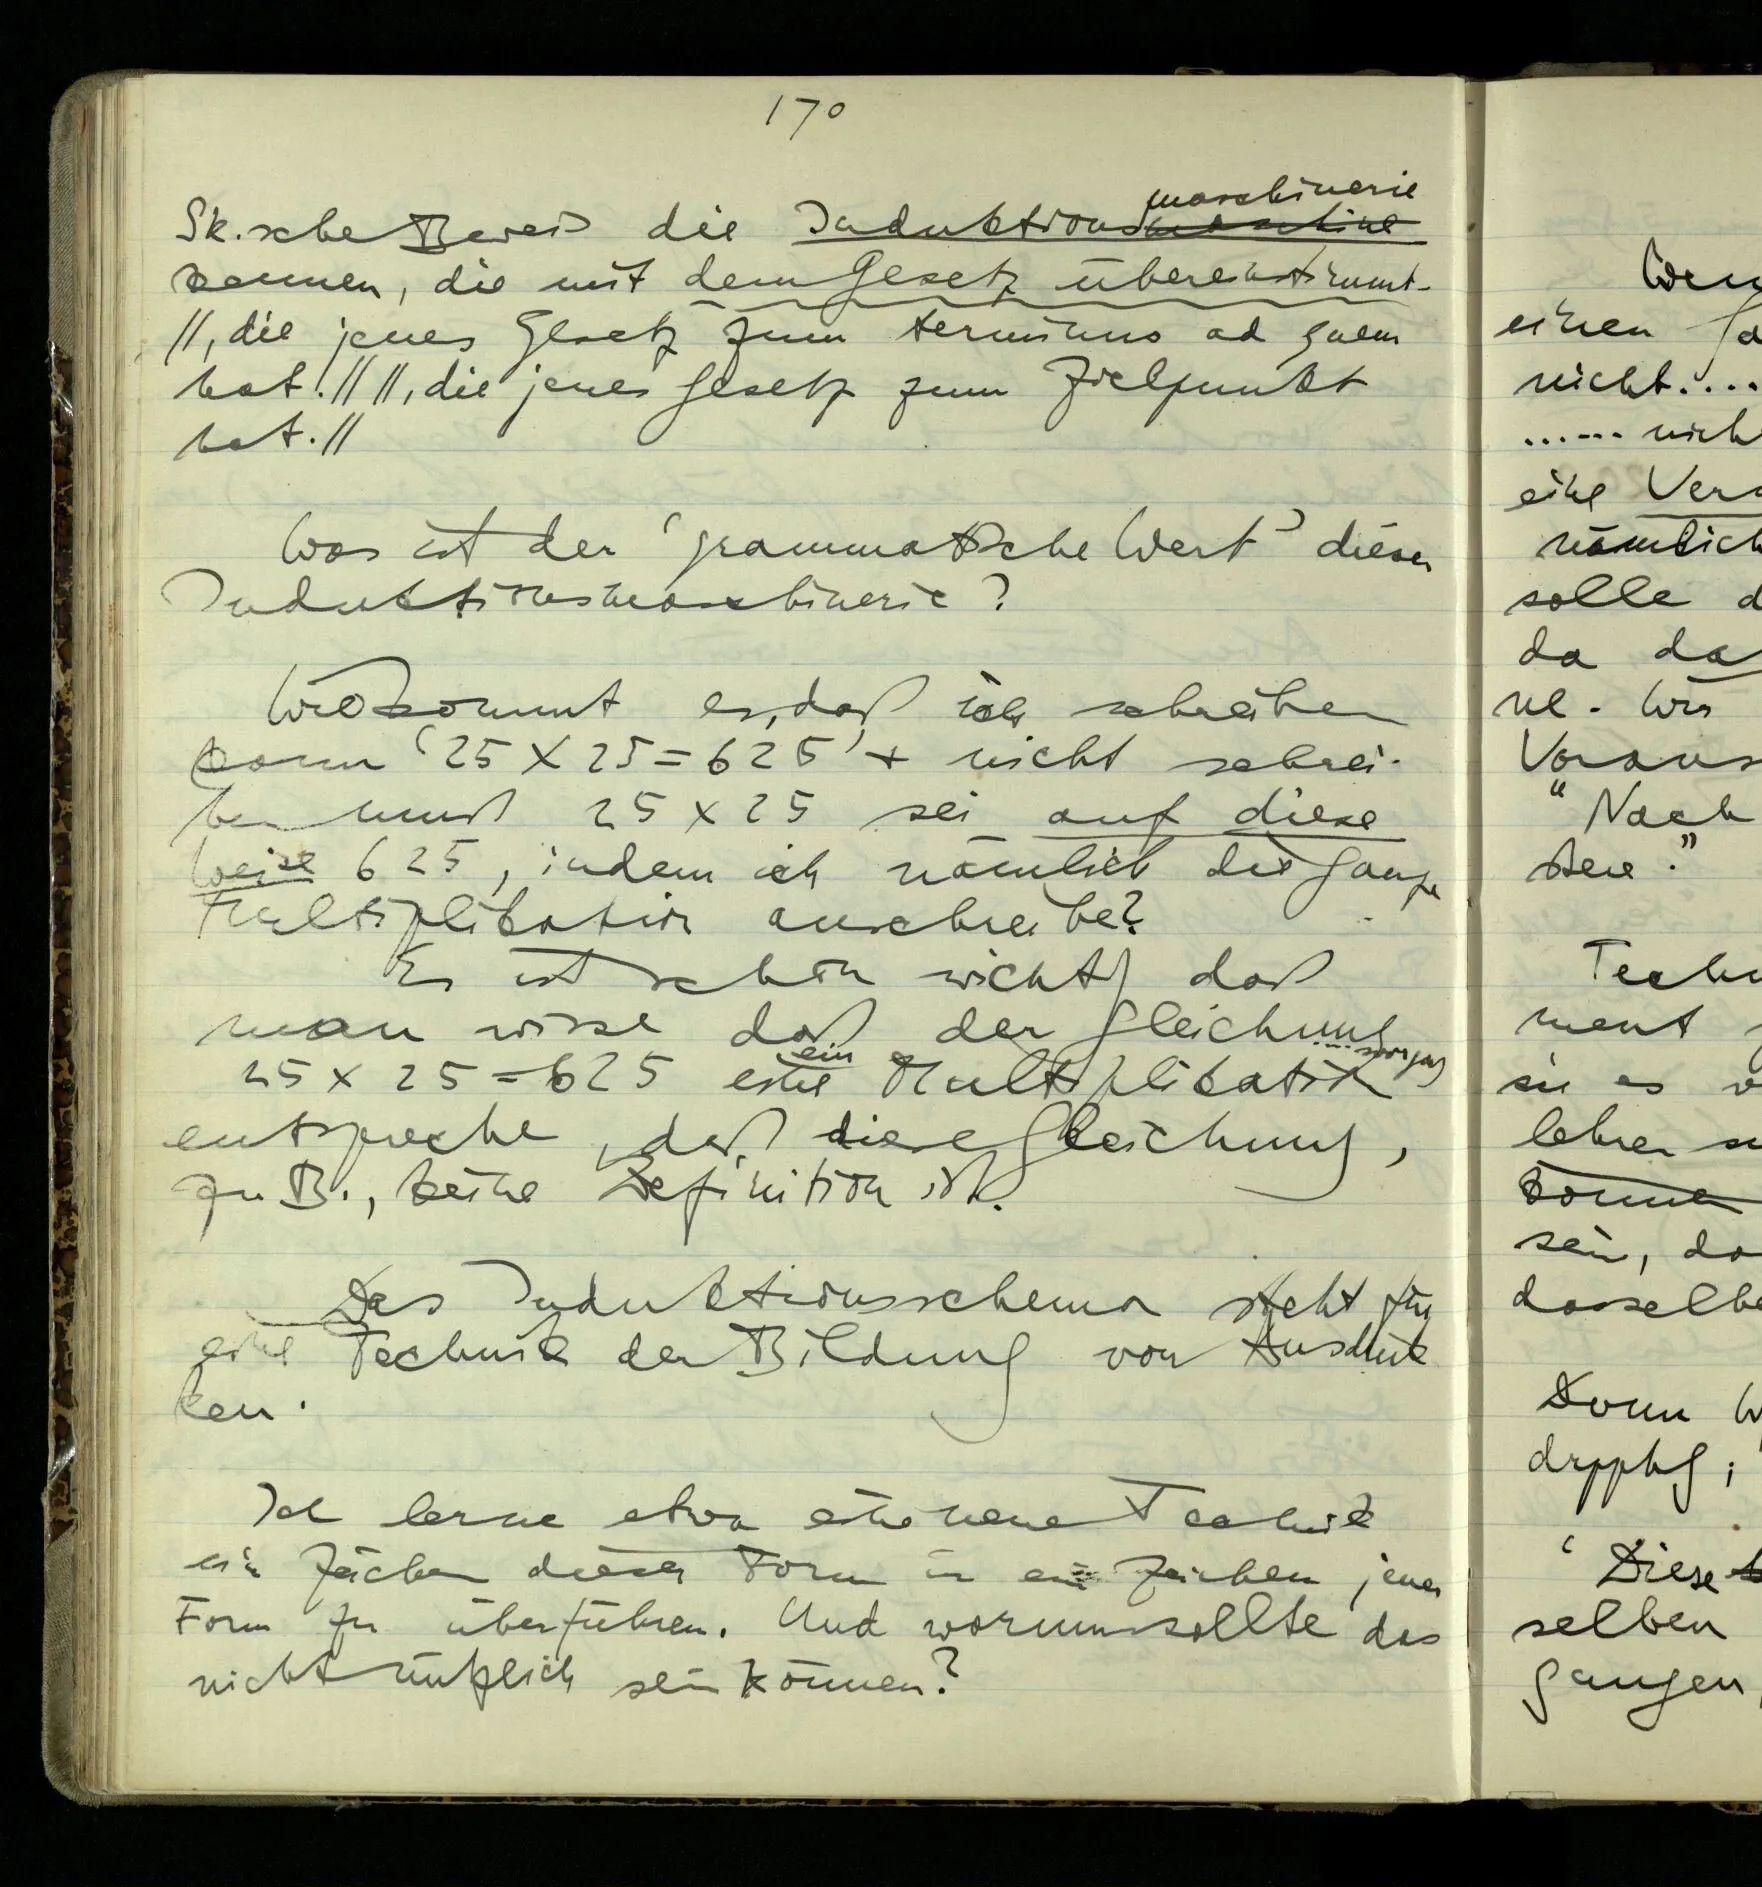 170
maschinerie
Sk.sche Beweis die Induktionsmaschine
kennen, die mit dem Gesetz übereinstimmt.
//, die jenes Gesetz zum terminus ad quem
hat.// //, die jenes Gesetz zum Zielpunkt
hat.//
Was ist der ‘grammatische Wert’ dieser
Induktionsmaschinerie?
Wie kommt es, daß ich schreiben
kann ‘25 × 25 = 625’ + nicht schrei-
ben muß 25 × 25 sei auf diese
Weise 625, indem ich nämlich die ganze
Multiplikation anschreibe?
Es ist schon wichtig daß
man wisse daß der Gleichung
ein
25 × 25 = 625 eine Multiplikation
entspreche, daß diese Gleichung,
zu B., keine Definition ist.
Das Induktionsschema steht für
eine Technik der Bildung von Ausdrük
ken.
Ich lerne etwa eine neue Technik
ein Zeichen dieser Form in ein Zeichen jener
Form zu überführen. Und warum sollte das
nicht nützlich sein können?
einen
nicht....
......
eine
solle
da
ne.
“Nach
”
können
sein,
dasselbe
Dann
‘Diese
selben
gangen,